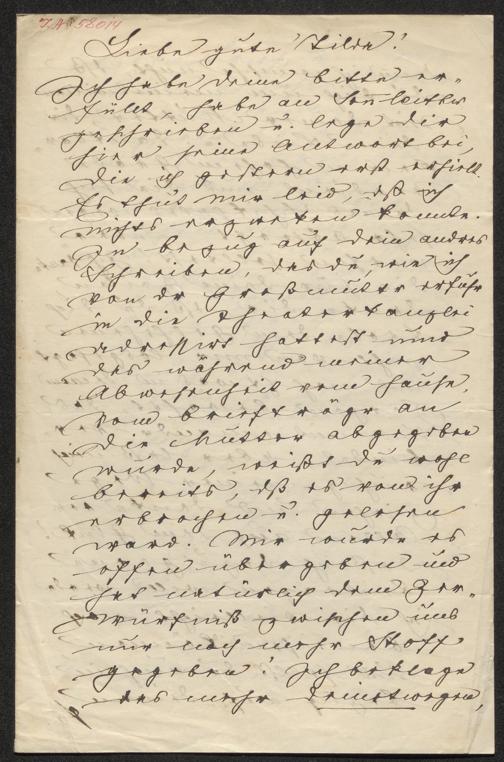 J.N. 58014
Liebe gute Tilda!
Ich habe deine bitte er-
füllt, habe an Sonnleithner
geschrieben u. lege dir
hier seine Antwort bei,
die ich gestern erst erhielt.
Es thut mir leid, dß ich
nichts erzwecken konnte.
In bezug auf dein andres
Schreiben, das du, wie ich
von dr Großmutter erfuhr
in die Theaterkanzlei
adressirt hattest und
das während meiner
Abwesenheit vom Hause,
vom briefträger an
die Mutter abgegeben
wurde, weißt du wohl
bereits, dß es von ihr
erbrochen u. gelesen
ward. Mir wurde es
offen übergeben und
hat natürlich dem Zer-
würfniß zwischen uns
nur noch mehr Stoff
gegeben! Ich beklage
das mehr deinetwegen,